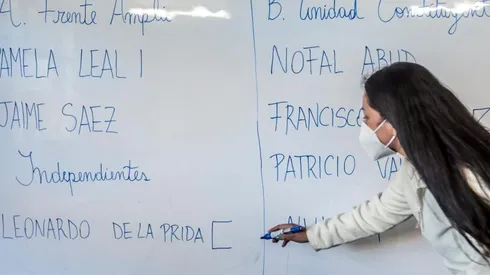 A. Frente Ampli
AMELA LEAL I
JAIME SAEZ
Independientes
LEONARDO DE LA PRIDA
B. Unidad Constituyent
NOFAL ABUD
FRANCISC
PATRICIO VA